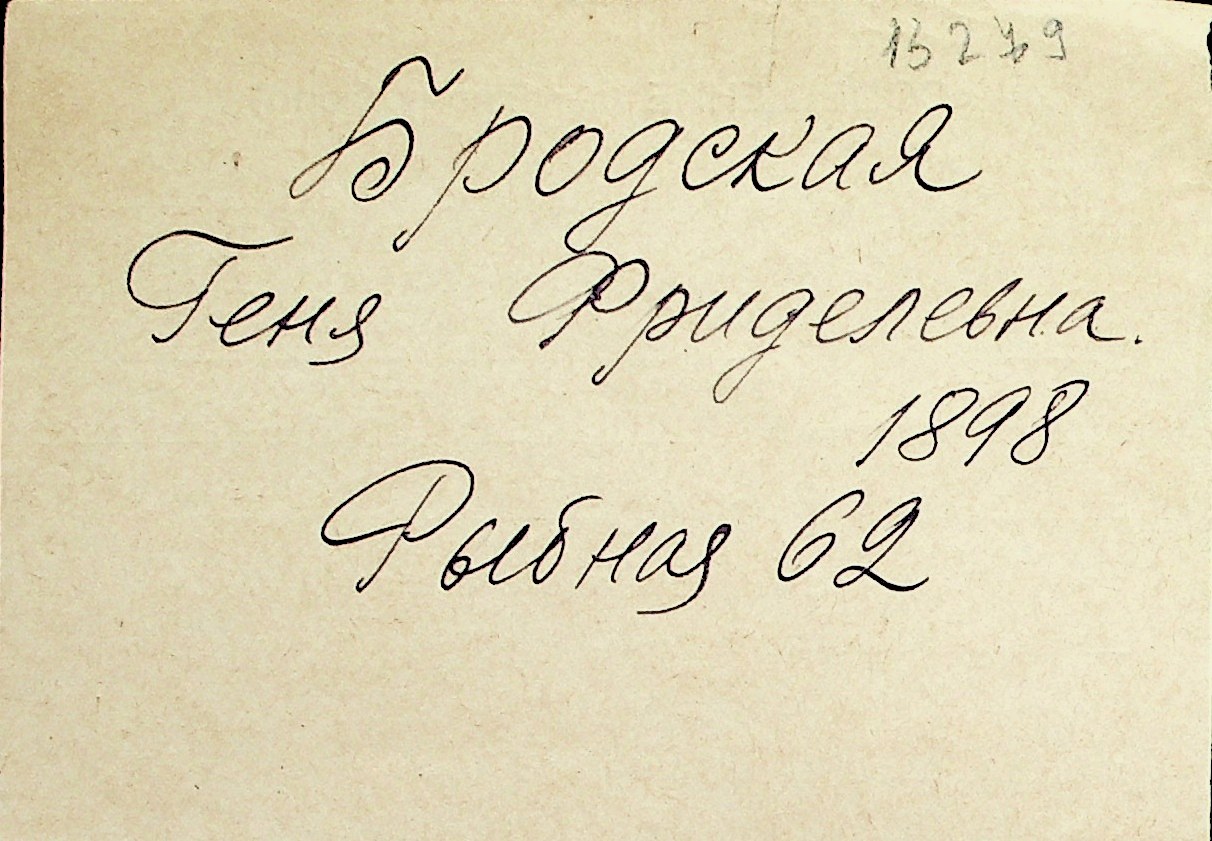 Бродская
Геня Фриделевна.
1898
Рыбная 62